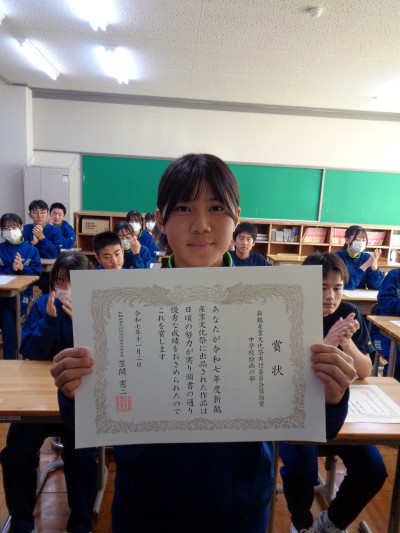 賞状
新鶴産業文化祭実行委員会協賛賞
中学校絵画の部
あなたが令和七年度新鶴
産業文化祭に出品された作品は
日頃の努力が実り頭書の通り
優秀な成績をおさめられたので
これを賞します
令和七年十一月二日